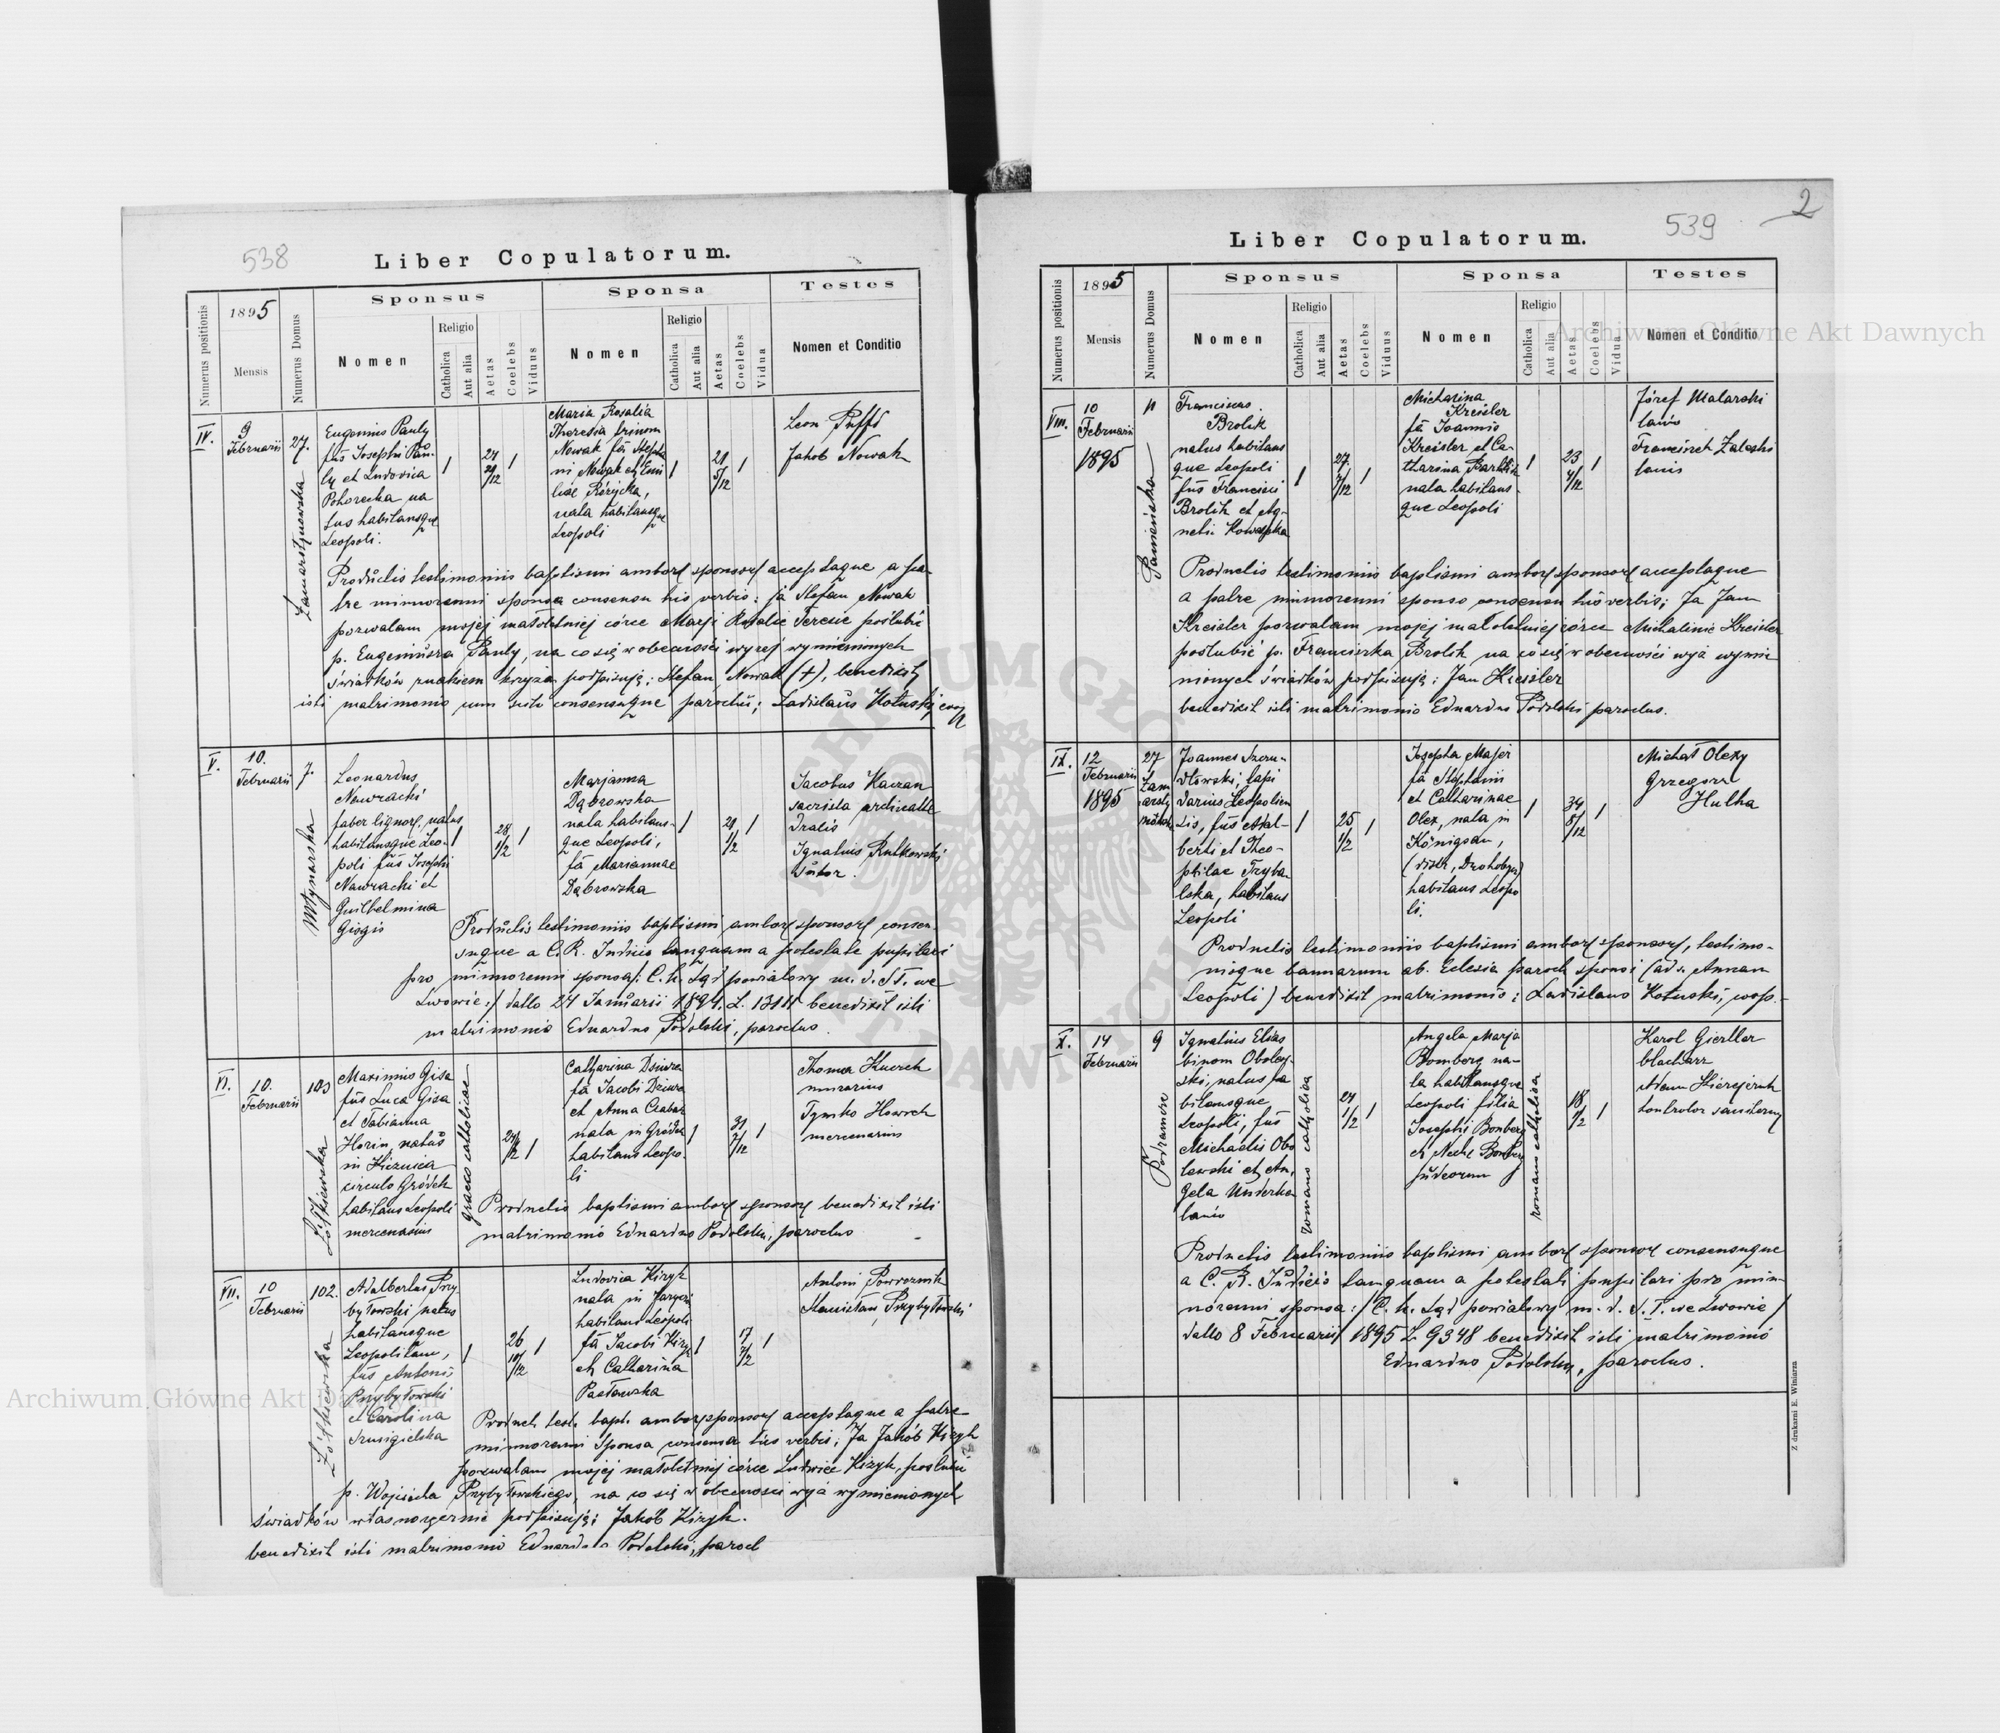 538
Liber Copulatorum.
Numerus positionis
1895
Mensis
Numerus Domus
Sponsus
Nomen
Religio
Catholica
Aut alia
Aetas
Coelebs
Viduus
Sponsa
Nomen
Religio
Catholica
Aut alia
Aetas
Coelebs
Vidua
Testes
Nomen et Conditio
IV.
9
Februarii
27.
Zamarstynowska
Eugenius Pauly
fus Josephi Pau-
ly et Ludovica
Pohorecka na
tus habitansque
Leopoli.
1
24
1
Maria Rosalia
Theresia trinom
Nowak fa Stepha
ni Nowak et Emi
liae Różycka,
nata habitansque
Leopoli
1
5/12
1
Leon Puffs
Jakob Nowak
Productis testimoniis baptismi ambor sponsor acceptaque a pa-
tre minorenni sponsa consensu his verbis: ja Stefan Nowak
pozwalam mojej małoletniej córce Marji Rozalie Teresie poślubić
p. Eugeniusza Pauly, na co się w obecności wyżej wymienionych
świadków znakiem krzyża podpisuję: Stefan Nowak (+), benedixit
isti matrimonio cum consensuque parochi; Ladislaus Kotuski coop
V.
10.
Februarii
7.
Młynarska
Leonardus
Nawracki
faber lignor, natus
habitansque Leo-
poli fus Josephi
Nawracki et
Guilhelmina
Giogis
1
28
1/2
1
Marjanna
Dąbrowska
nata habitans-
que Leopoli,
fa Mariannae
Dąbrowska
1
1/2
1
Jacobus Kaczan
sacrista archicathe
dralis
Ignatius Rutkowski
sutor.
Productis testimoniis baptismi ambor sponsor consen-
suque a C. R. Judicio tanquam a potestate pupilari
pro minorenni sponsa/: C. k. Sąd powiatowy m. d. S. I. we
Lwowie:/ datto 24 Januarii 1894. L. benedixit isti
matrimonio Eduardus Podolski, parochus.
VI.
10.
Februarii
103
Żółkiewska
Maximus Gisa
fus Luca Gisa
et Tabianna
Horin, natus
in Kiernica
circulo Gródek
habitans Leopoli
mercenarius
graeco catholicae
1
Catharina Dziura
fa Jacobi Dziura
et Anna Czabar
nata in Gródek
habitans Leopo-
li
1
31
7/12
1
Thoma Kuzich
murarius
Tymko Howrch
mercenarius
Productis baptismi ambor sponsor benedixit isti
matrimonio Eduardus Podolski, parochus
VII.
10
Februarii
102.
Żółkiewska
Adalbertus Przy
byłowski natus
habitansque
Leopolitan,
fus Antoni
Przybyłowski
et Carolina
Szusigielska
1
26
10/12
1
Ludovica Kizyk
nata in
habitans Leopoli
fa Jacobi Kizyk
et Catharina
Pasławska
1
17
1
Antoni Powroznik
Stanisław Przybyłowski
Product. test. bapt. ambor sponsor acceptaque a patre
minorenni sponsa consensu his verbis; Ja Jakób Kizyk
pozwalam mojej małoletniej córce Ludwice Kizyk, poślubić
p. Wojciecha Przybyłowskiego, na co się w obecności wyż wymienionych
świadków własnoręcznie podpisuję: Jakób Kizyk.
benedixit isti matrimonio Eduardus Podolski, paroch
2
539
Liber Copulatorum.
Numerus positionis
1895
Mensis
Numerus Domus
Sponsus
Nomen
Religio
Catholica
Aut alia
Aetas
Coelebs
Viduus
Sponsa
Nomen
Religio
Catholica
Aut alia
Aetas
Coelebs
Vidua
Testes
Nomen et Conditio
VIII.
10
Februarii
1895
11
Panieńska
Franciscus
Brolik
natus habitans
que Leopoli
fus Francisci
Brolik et Ag-
netis Kowalska
1
27
7/12
1
Micharina
Kreisler
fa Joannis
Kreisler et Ca-
tharina
nata habitans-
que Leopoli
1
23
4/12
1
Józef Malarski
lanio
Franciszek Zaleski
lanio
Productis testimoniis baptismi ambor sponsor acceptaque
a patre minorenni sponso consensu his verbis; Ja Jan
Kreisler pozwalam mojej małoletniej córce Michalinie Kreisler
poślubić p. Franciszka Brolik na co się w obecności wyż wymie
nionych świadków podpisuję: Jan Kreisler
benedixit isti matrimonio Eduardus Podolski parochus.
IX.
12
Februarii
1895
27
Zam
arsty
nowska
Joannes Szeru-
dłowski, lapi
darius Leopolien
sis, fus Adal-
berti et Theo-
philae Tryba
lska, habitans
Leopoli
1
25
1/2
1
Josepha Majer
fa Stephanii
et Catharinae
Olex, nata in
Königsau,
(distr. Drohobycz)
habitans Leopo
li.
1
34
8/12
1
Michał Olexy
Grzegorz
Hulka
Productis testimoniis baptismi ambor sponsor, testimo-
nioque bannorum ab Eclesia paroch sponsi (ad s. Annam
Leopoli) benedixit matrimonio: Ladislaus Kotuski, coop.
X.
14
Februarii
9
Podzamcze
Ignatius Elias
binom Obolew-
ski, natus ha
bitansque
Leopoli, fus
Michaelis Obo
lewski et An-
gela Underka
lanio
romano catholica
24
1/2
1
Angela Marja
Bomberg na-
ta habitansque
Leopoli filia
Josephi Bomberg
et Neche Bomberg
judeorum
romano catholica
18
1/2
1
Karol Giertler
blacharz
Adam Hierejczuk
kontrolor sanitarny
Productis testimoniis baptismi ambor sponsor consensuque
a C. R. Judicio tanquam a potestati pupilari pro min-
norenni sponsa:/ C. k. Sąd powiatowy m. d. S. I. we Lwowie/
datto 8 Februarii 1895 L 9348 benedixit isti matrimonio
Eduardus Podolski, parochus.
Z drukarni E. Winiarza
Archiwum Główne Akt Dawnych
Archiwum Główne Akt Dawnych